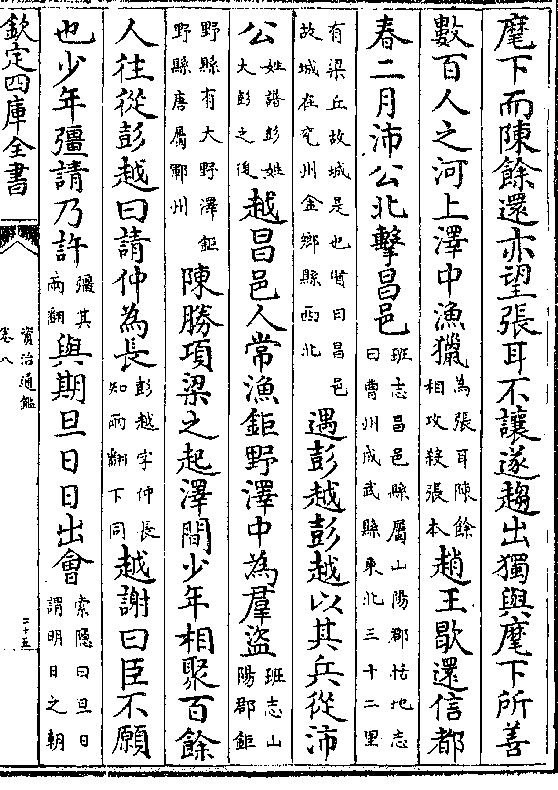 麾下而陳餘還亦望張耳不讓遂趨出獨與麾下所善
數百人之河上澤中漁獵為張耳陳餘相攻殺張本趙王歇還信都
春二月沛公北擊昌邑班志昌邑縣屬山陽郡括地志曰曹州成武縣東北三十二里
有梁丘故城是也賢曰昌邑故城在兖州金鄉縣西北遇彭越彭越以其兵從沛
公姓譜彭姓大彭之後越昌邑人常漁鉅野澤中為羣盜班志山陽郡鉅
野縣有大野澤鉅野縣唐屬鄆州陳勝項梁之起澤間少年相聚百餘
人往從彭越曰請仲為長彭越字仲長知兩翻下同越謝曰臣不願
也少年彊請乃許彊其兩翻與期旦日日出會索隱曰旦日謂明日之朝
欽定四庫全書
資治通鑑
卷八
二十五